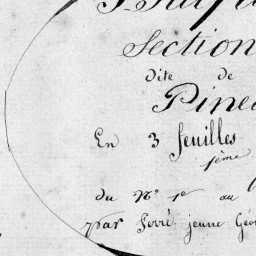 Section
dite de
Pine
En 3 feuilles
1ème
du No 1er au
par Ferré jeune Géo